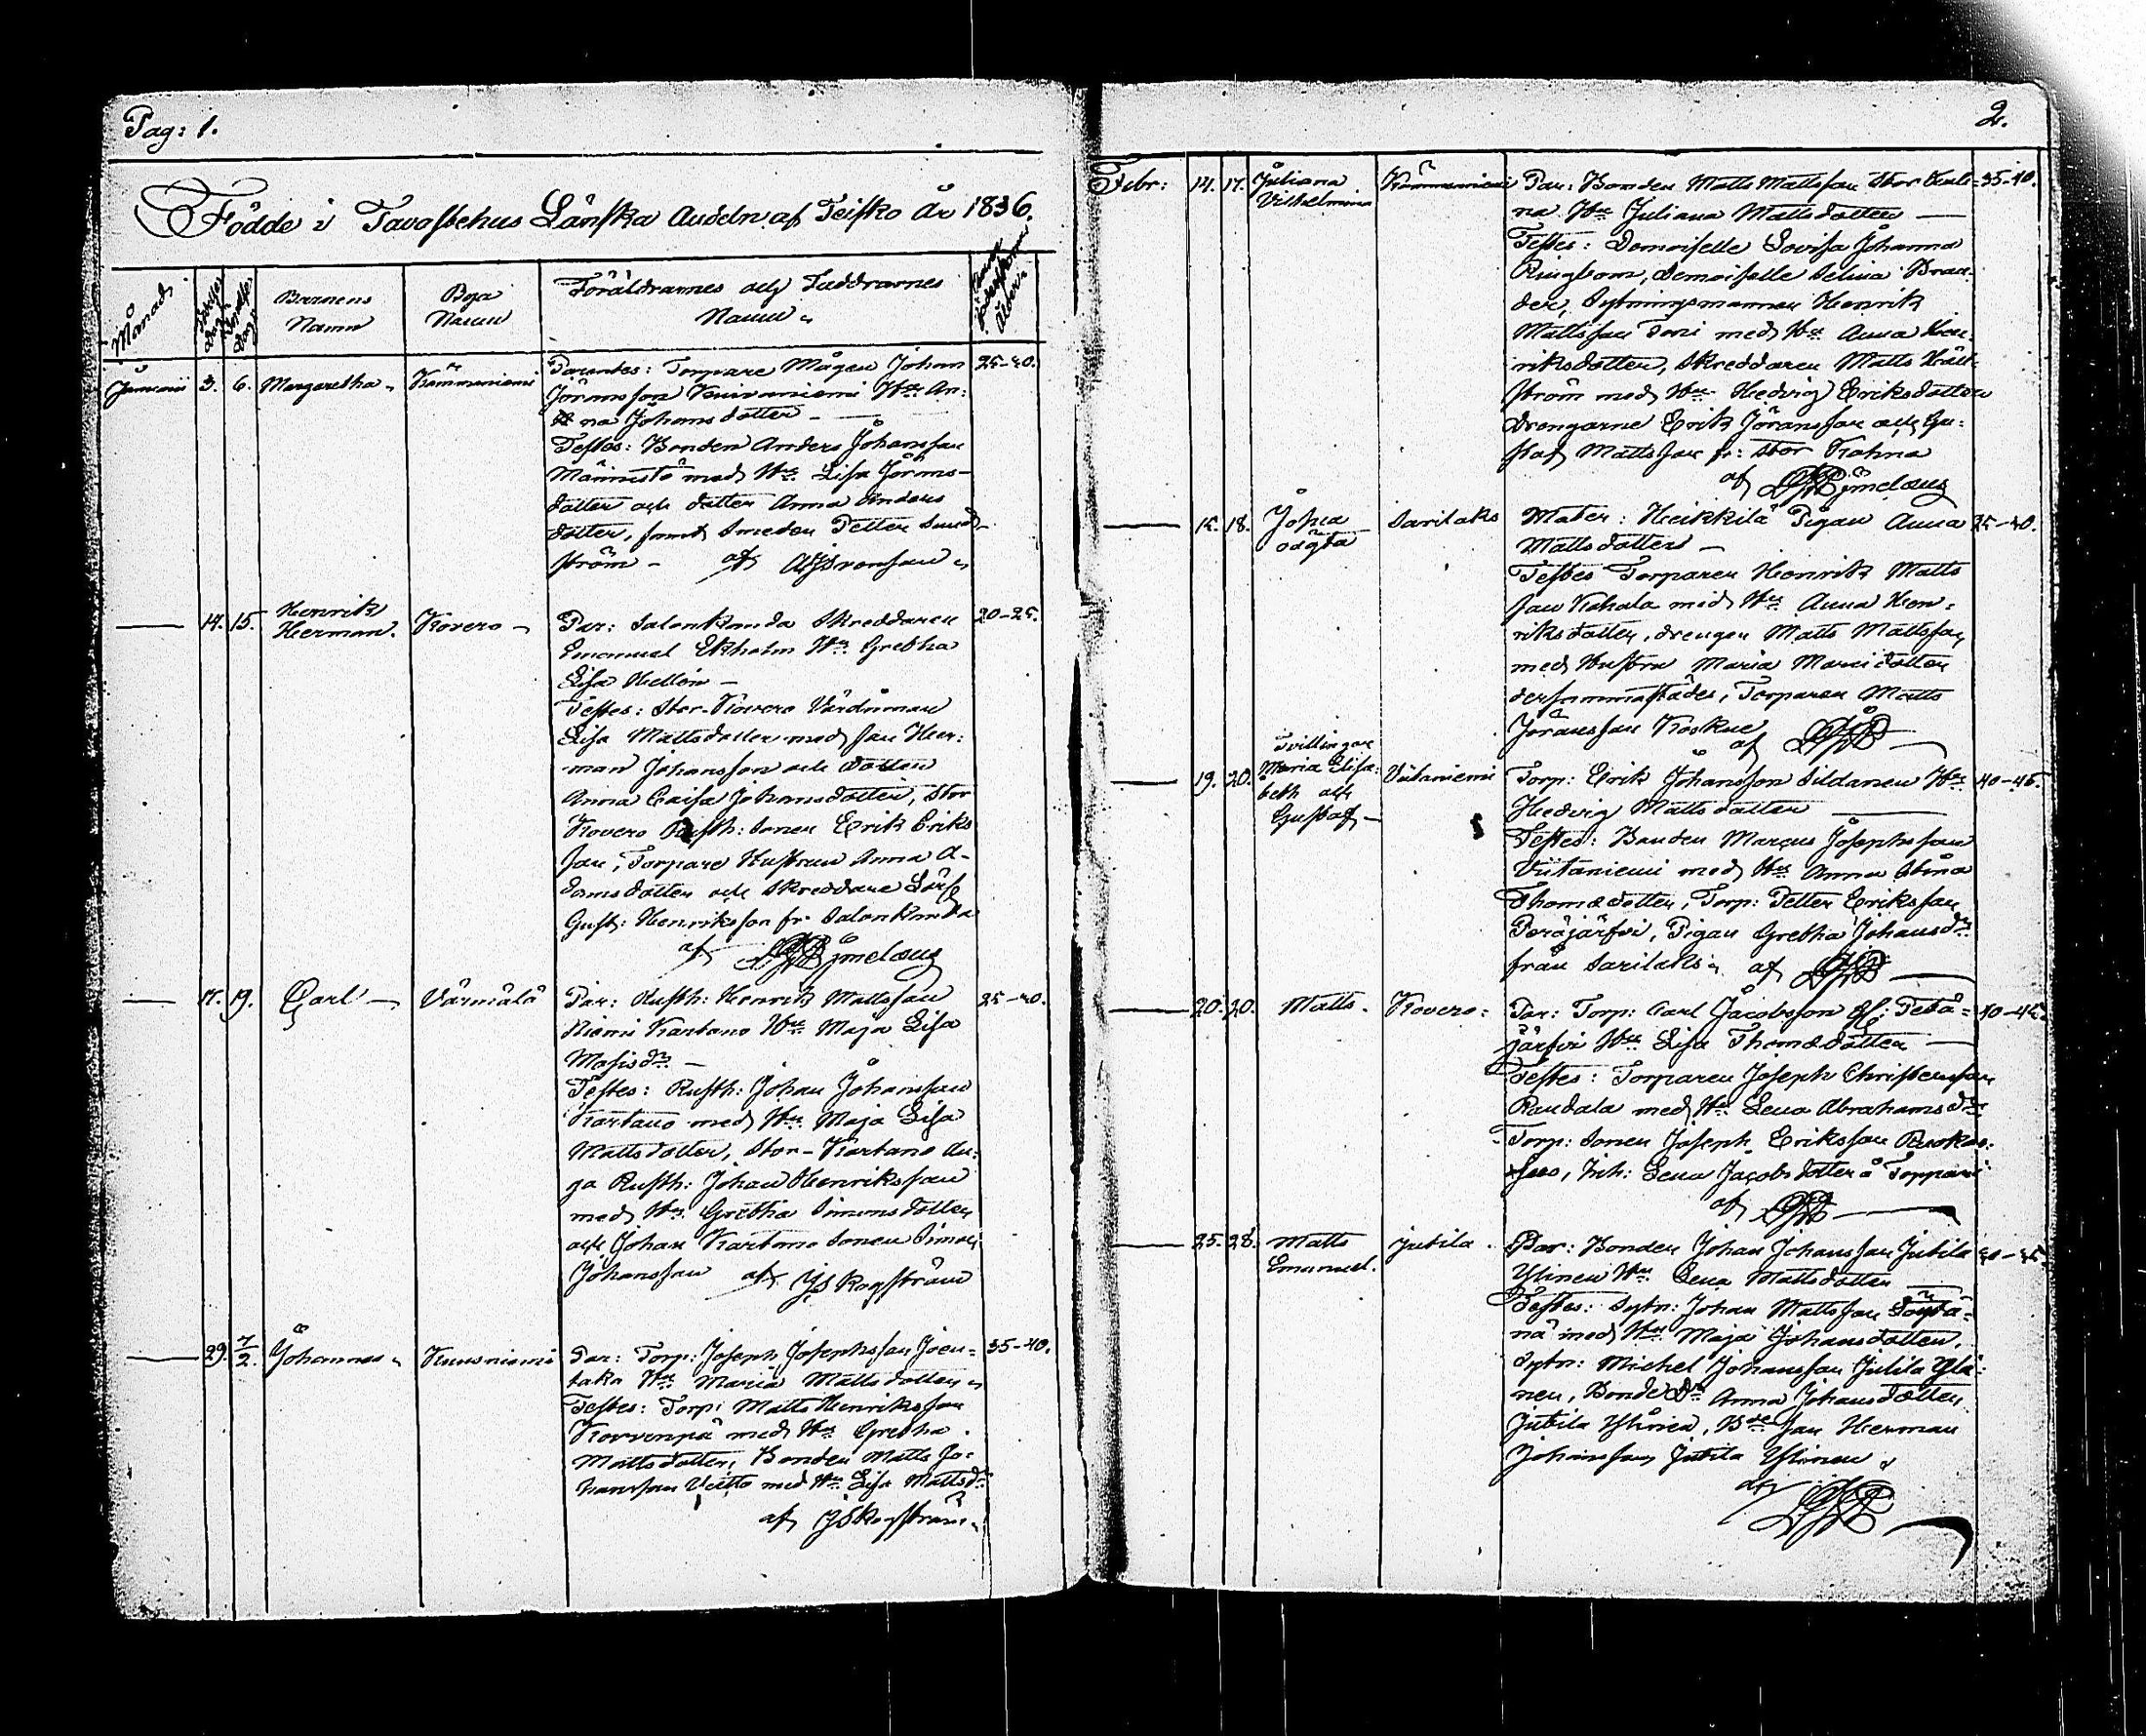 Pag: 1.
Födde i Tavastehus Länska Andeln af Teisko År 1836.
Månad
Födelse Dag
Döpelse Dag
Barnens Namn
Bya Namn
Föräldrarnes och Faddrarnes Namn
Ålder
Januari 3. 6. Margaretha Kämmeniemi Parentes: Torpare Mågen Johan 25-30.
Jöransson Hu An-
na Johansdotter
Testes: Bonden Anders Johansson
Männistö med Hu Lisa Jörans-
dotter och dotter Anna Anders
dotter, samt Smeden Petter Sund-
ström - af
14. 15. Henrik Herman. Kovero Par: Salonkunda Skreddaren 20-25.
Emanuel Ekholm Hu Gretha
Lisa Hellon
Testes: Stor-Kovero Värdinnan
Lisa Mattsdotter med son Her-
man Johansson och dotter
Anna Caisa Johansdotter, Stor
Kovero Rusth: Sonen Erik Eriks
son, Torpare Hustrun Anna A-
damsdotter och Skreddare Lärl
Gust: Henriksson fr. Salonkunda
af
17. 19. Carl Värmälä Par: Rusth: Henrik Mattsson 25-30.
Niemi Kartano Hu Maja Lisa
Testes: Rusth: Johan Johansson
Kartano med Hu Maja Lisa
Mattsdotter, Stor-Kartano Un-
ga Rusth: Johan Henriksson
med Hu Gretha Simonsdotter
och Johan Kartano Sonen Simon
Johansson af J Skogström
29. 7/2. Johannes Kuusniemi Par: Torp: Joseph Josephsson Joen- 35-40.
taka Hu Maria Mattsdotter
Testes: Torp: Matts Henriksson
Korvenpä med Hu Gretha
Mattsdotter, Bonden Matts Jo-
hansson Veitto med Hu Lisa Mattsdr
af J Skogström
2.
Febr: 14. 17. Juliana Vilhelmina Kämmeniemi Par: Bonden Matts Mattsson Stor 35-40.
na Hu Juliana Mattsdotter
Testes: Demoiselle Lovisa Johanna
Ringbom, Demoiselle Selina Bran-
der, Sytningsmannen Henrik
Mattsson Toni med Hu Anna Hen-
riksdotter, Skreddaren Matts Häll-
ström med Hu Hedvig Eriksdotter
Drengarne Erik Jöransson och Gu-
staf Mattsson fr: Stor Kahna
af
15. 18. Johan oägta Sarilaks Mater: Heikkilä Pigan Anna 25-30.
Mattsdotter
Testes Torparen Henrik Matts
son Kahala med Hu Anna Hen-
riksdotter, drengen Matts Mattsson
med Hustru Maria Mattsdotter
dersammastädes, Torparen Matts
Jöransson Koskue af
19. 20. Tvillingar Maria Elisa-
beth och
Gustaf Viitaniemi Torp: Erik Johansson Sildanen Hu 40-45.
Hedvig Mattsdotter
Testes: Bonden Marcus Josephsson
Viitaniemi med Hu Anna Stina
Thomædotter, Torp: Petter Eriksson
Peräjärfvi, Pigan Gretha Johansdr
från Sarilaks af
20. 20. Matts. Kovero: Par: Torp: Carl Jacobsson Petä- 40-45.
järfvi Hu Lisa Thomædotter
Testes: Torparen Joseph Christensson
Randala med Hu Lena Abrahamsdr
Torp: Sonen Joseph Eriksson
Inh: Lena Jacobsdotter å Toppari
af
25. 28. Matts Emanuel. Jutila Par: Bonden Johan Johansson Jutila 40-45
Ylinen Hu Lena Mattsdotter
Testes: Sytn: Johan Mattsson
nä med Hu Maja Johansdotter,
Sytn: Michel Johansson Jutila Yli-
nen, Bonde Dr Anna Johansdotter
Jutila Ylinen, Bde Son Herman
Johansson Jutila Ylinen
af